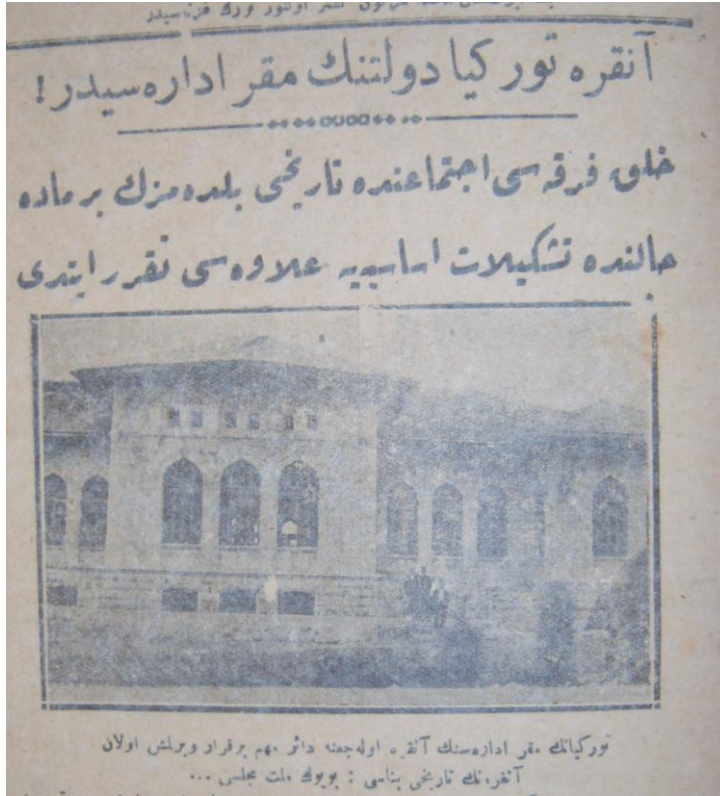 آنقره تورکیا دولتنك مقر اداره‌سیدر!
خلق فرقه‌سی اجتماعنده تاریخی بلده‌مزك بر ماده
حالنده تشکیلات اساسیه علاوه‌سی تقرر ایتدی
تورکیانك مقر اداره‌سنك آنقره اوله‌جغنه دائر مهم بر قرار ویرلمش اولان
آنقره‌نك تاریخی بناسی : بویوك ملت مجلسی ...